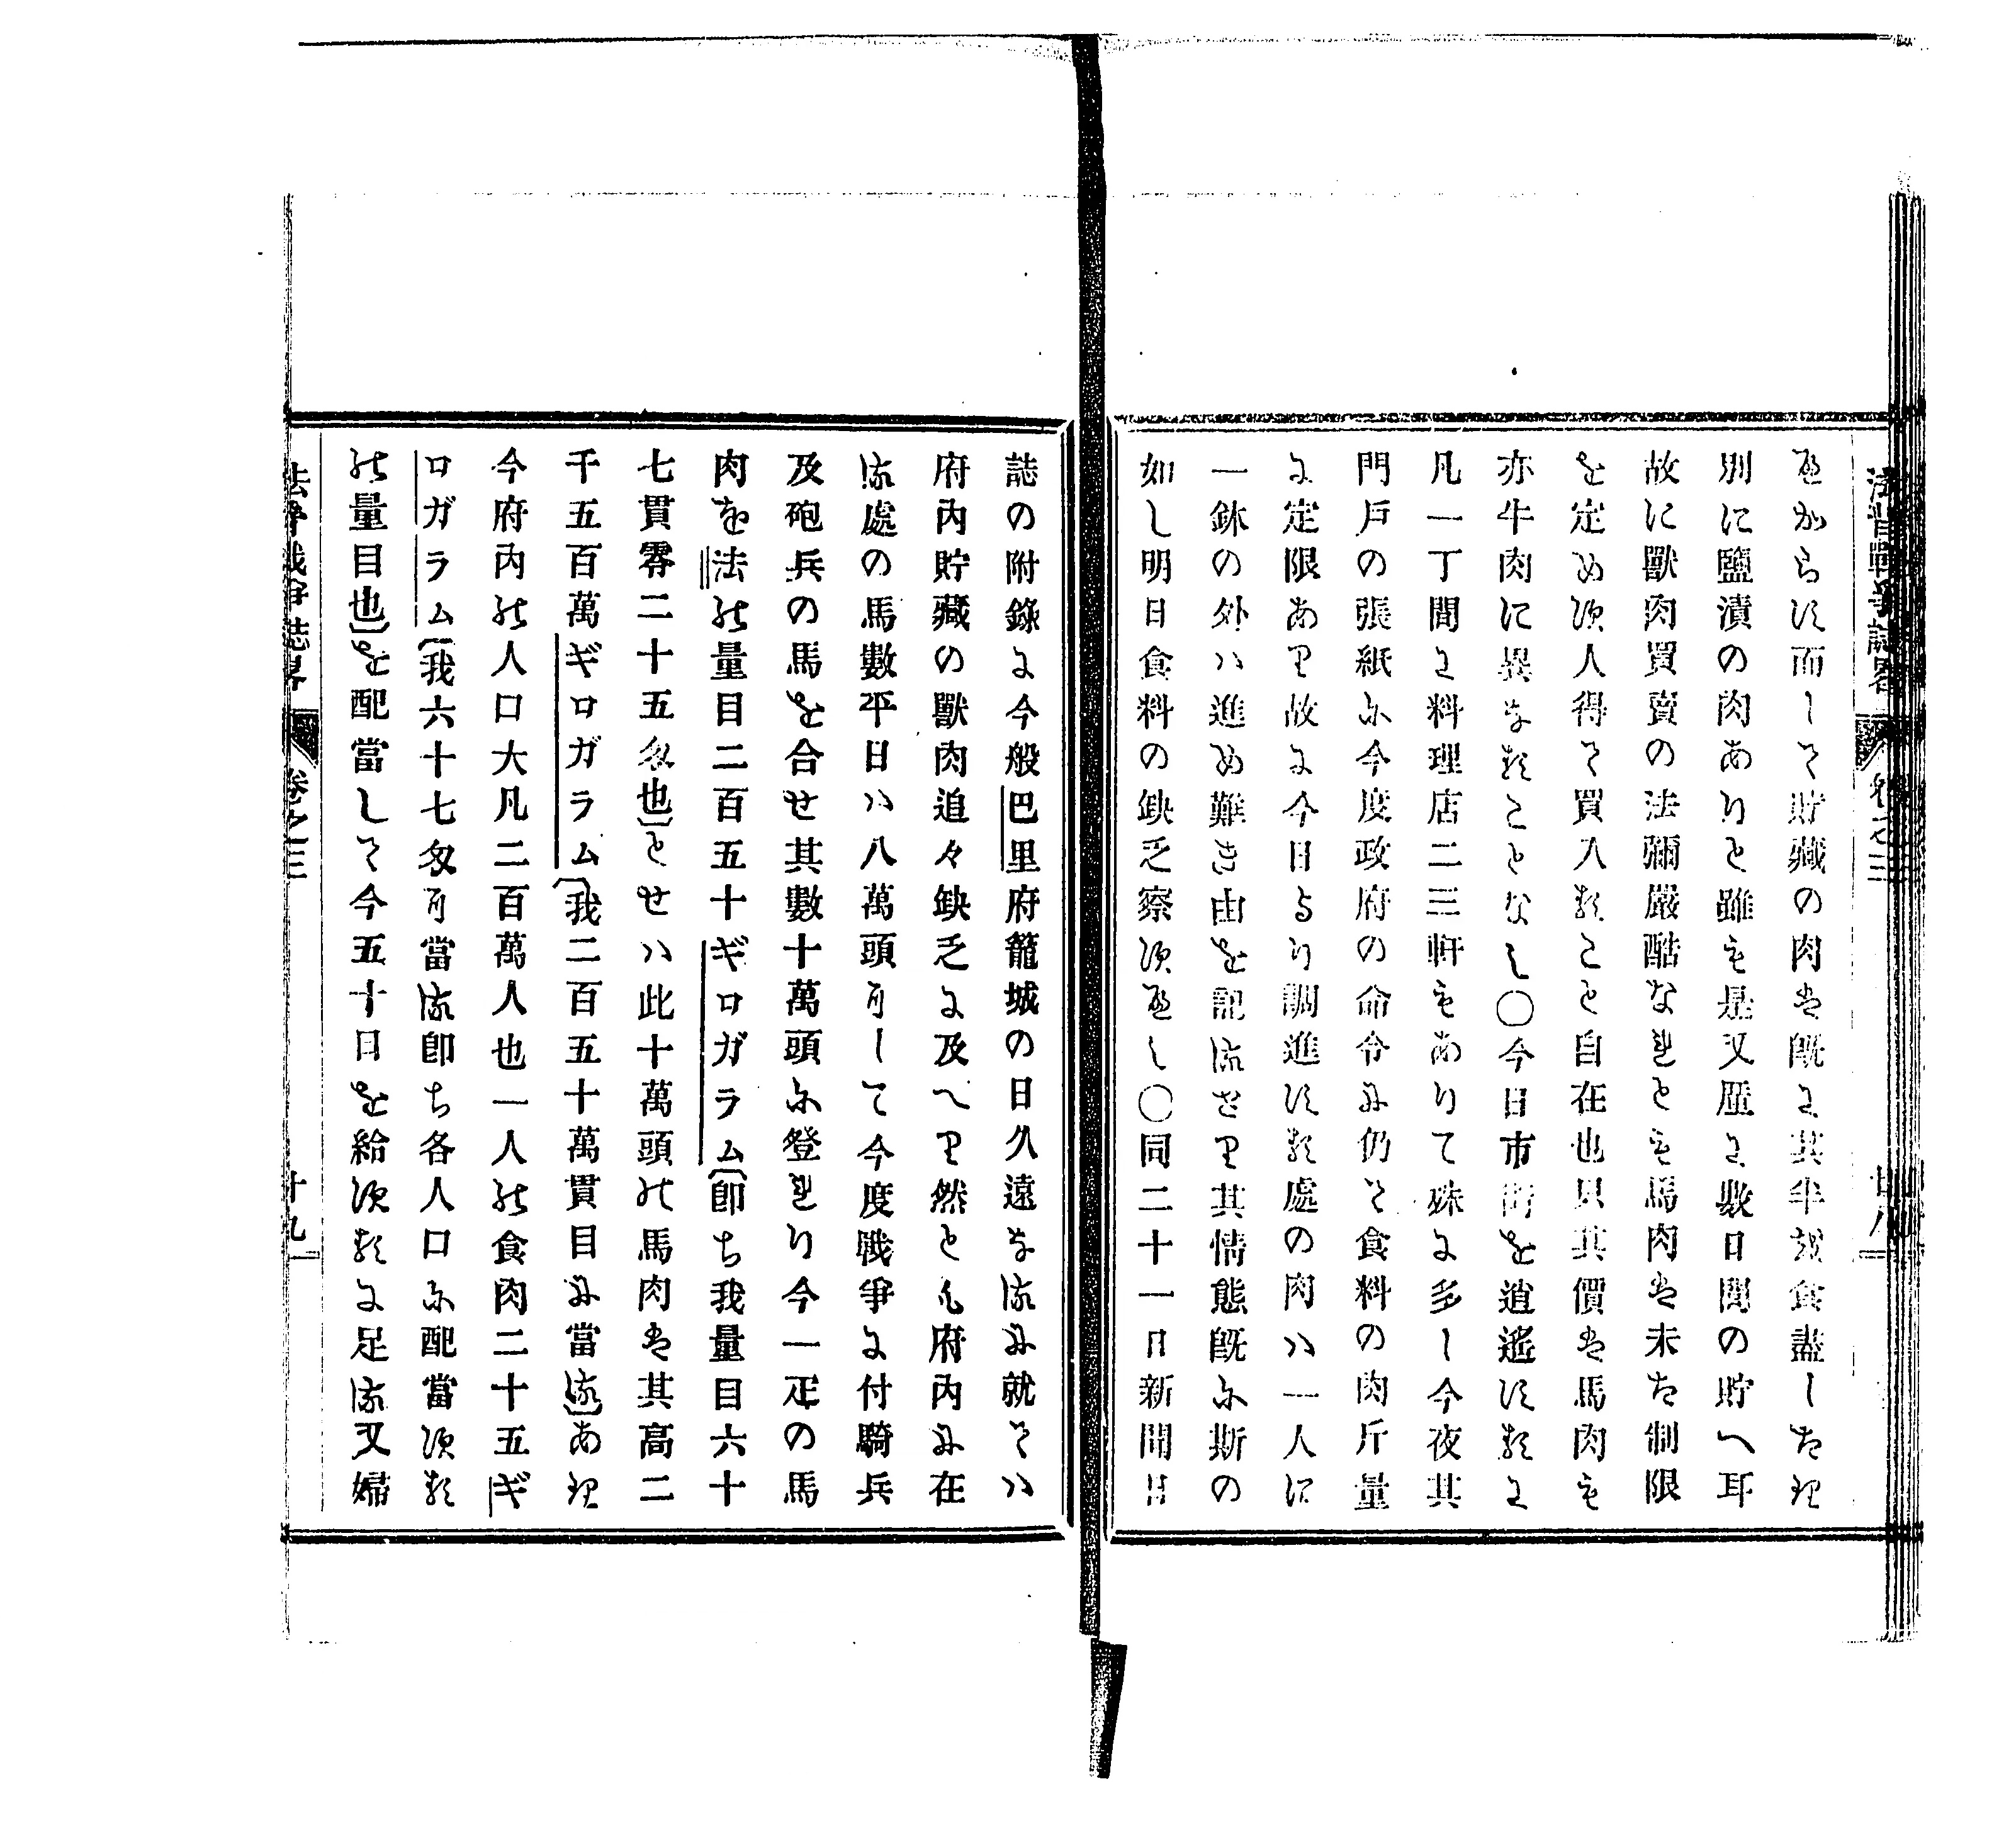 べからに而して貯藏の肉は既に其半を食盡したり
別に鹽漬の肉ありと雖も是又僅に數日間の貯へ耳
故に獸肉買賣の法彌嚴酷なれとも馬肉は未た制限
を定めす人得て買入ることを自在也只其價は馬肉も
亦牛肉に異なることなし〇今日市街を逍遙するに
凡一丁間に料理店二三軒もありて殊に多し今夜其
門戸の張紙に今度政府の命令に仍て食料の肉斤量
に定限あり故に今日より調進する處の肉ハ一人に
一鉢の外ハ進め難き由を記るせり其情態既に斯の
如し明日食料の缺乏察すべし〇同二十一日新聞日
誌の附錄に今般巴里府籠城の日久遠なるに就てハ
府内貯藏の獸肉追々缺乏に及へり然とも府内に在
る處の馬數平日ハ八萬頭可して今度戰爭に付騎兵
及砲兵の馬を合せ其數十萬頭に登れり今一疋の馬
肉を法の量目二百五十ギロガラム〔卽ち我量目六十
七貫零二十五匁也〕とせハ此十萬頭の馬肉は其高二
千五百萬ギロガラム〔我二百五十萬貫目に當る〕あり
今府内の人口大凡二百萬人也一人の食肉二十五ギ
ロガラム〔我六十七匁可當る卽ち各人口に配當する
の量目也〕を配當して今五十日を給するに足る又婦
法孛戰爭誌畧 卷之三 十九